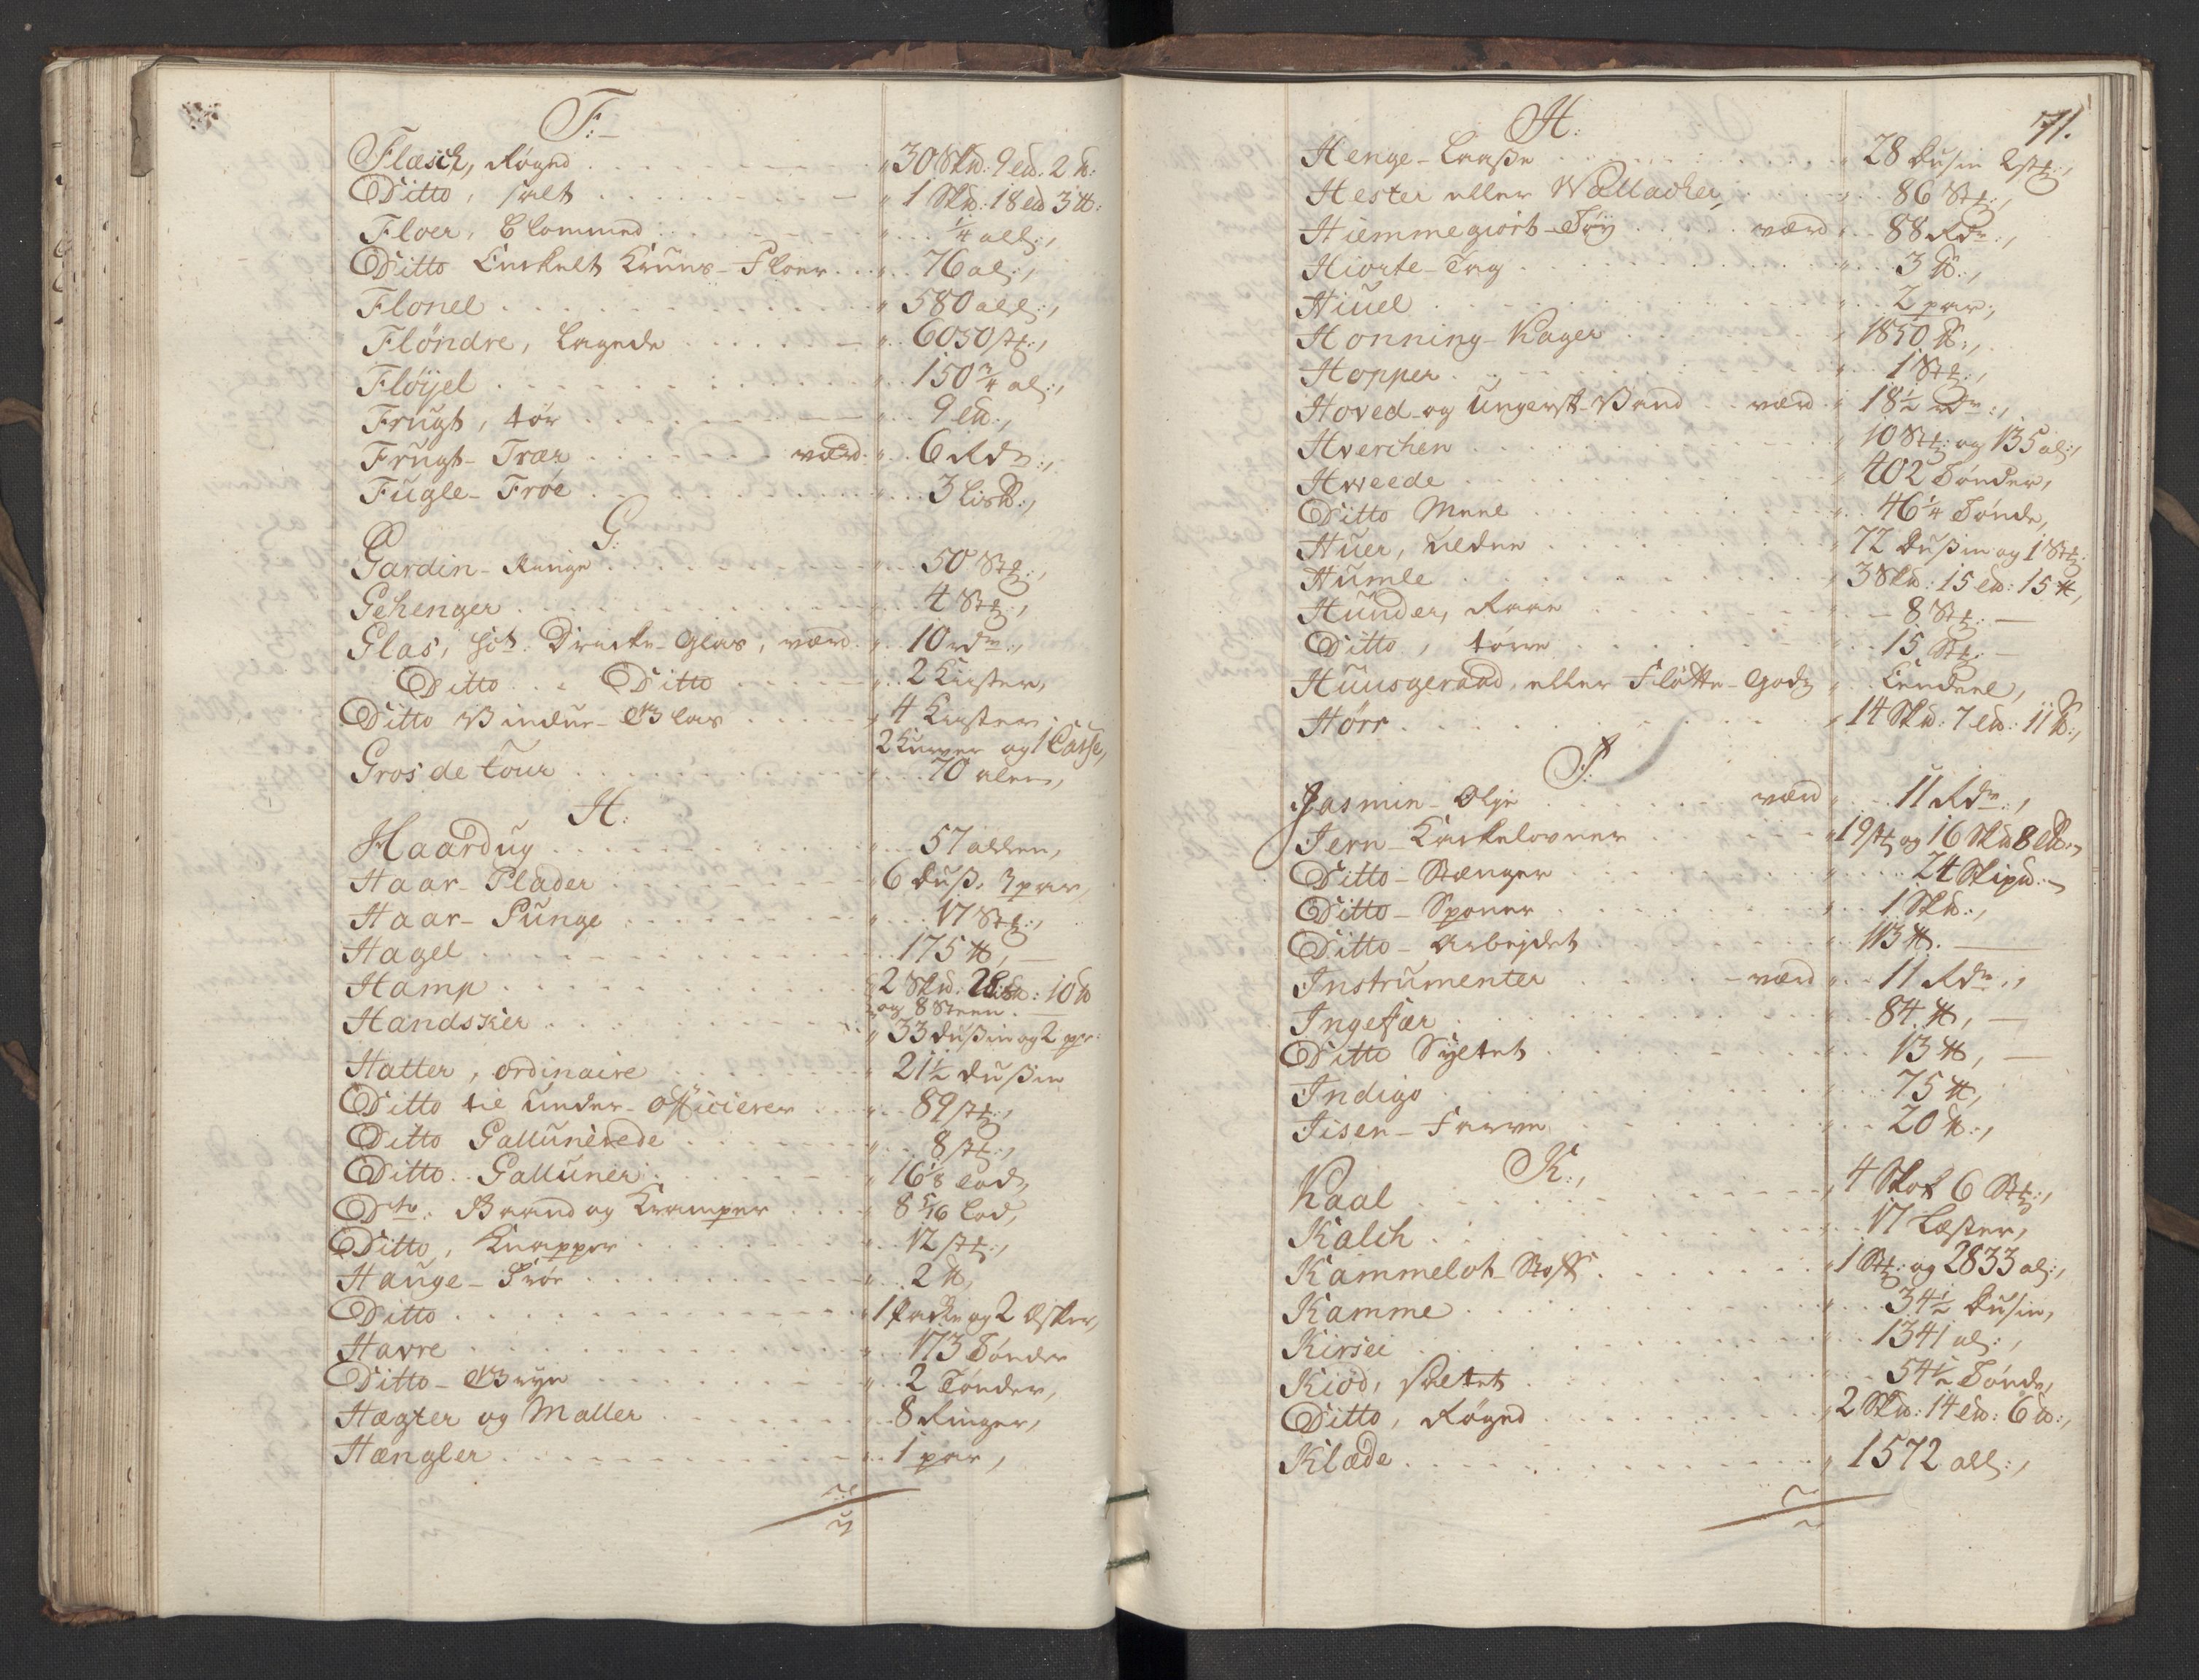 F:
Flæsch, Røged . . . 30 Skd: 9 Ld: 2 ℔:
Ditto, salt . . . 1 Skd: 18 Ld 3 ℔:
Floer, Blommed . . . 1/4 all:,
Ditto Enkelt Kruus-Floer . . . 76 al:,
Flonel . . . 580 all:,
Fløndre, Lagede . . . 6050 stk:,
Fløyel . . . 150 3/4 al:,
Frugt, tør . . . 9 Ld:,
Frugt-Træer . . . værd . . 6 Rdr:,
Fugle-Frøe . . . 3 Lis℔:,
G:
Gardin-Ringe . . . 50 Stk:,
Gehenger . . . 4 Stk:,
Glas, Drikke-Glas, værd . . 10 rdr:,
Ditto . . Ditto . . . 2 Kister,
Ditto Vindue-Glas . . . 4 Kister
2 Kurver og 1 Casse,
Gros de Tour . . . 70 alen,
H:
Haardug . . . 57 allen,
Haar-Plader . . . 6 duß: 3 par,
Haar-Punge . . . 17 Stk:,
Hagel . . . 175 ℔,
Hamp . . . 2 Skd: 2 Lis℔: 10 ℔
og 8 Steen.
Handsker . . . 33 dußin og 2 par:
Hatter, ordinaire . . . 21 1/2 dußin
Ditto til Under-Officierer . . . 89 stk:,
Ditto Gallunerede . . . 8 stk:,
Ditto . . Galluner . . . 16 1/8 Lod,
Dto: Baand og Kramper . . . 8 5/16 Lod,
Ditto, Knapper . . . 12 stk:,
Hauge-Frøe . . . 2 ℔,
Ditto . . . 1 Pakke og 2 Æsker,
Havre . . . 173 Tønder
Ditto-Gryn . . . 2 Tønder,
Hægter og Maller . . . 8 Ringer,
Hængler . . . 1 par,
71.
H:
Henge-Laaße . . . 28 Dusin 2 stk:,
Hester eller Wallacher, . . . 86 Stk:,
Hiemmegiort-Tøy . . . værd . . 88 Rdr:,
Hiorte-Tag . . . 3 ℔:,
Hiuel . . . 2 par,
Honning-Kager . . . 1850 ℔:,
Hopper . . . 1 Stk:,
Hoved-og Ungersk-Vand . . værd . 18 1/2 rdr:,
Hverchen . . . 10 Stk: og 135 al:,
Hweede . . . 402 Tønder,
Ditto Meel . . . 46 1/4 Tønde,
Huer, Ulden . . . 72 Dußin og 1 Stk:
Humle . . . 3 Skd: 15 Ld: 15 ℔,
Hunder, Raae . . . 8 Stk:
Ditto, tørre . . . 15 Stk:
Huusgeraad, eller Flötte-Godz . . Eendeel,
Hörr . . . 14 Skd: 7 Ld: 11 ℔:,
J:
Jasmin-Olje . . . værd . . 11 Rdr:,
Jern-Kackelovner . . . 19 stk og 16 Skd 8 L℔:,
Ditto-Stænger . . . 24 Skipd:,
Ditto-Sponer . . . 1 Skd:,
Ditto-Arbejdet . . . 113 ℔.
Instrumenter . . . værd . . 11 Rdr:,
Ingefær . . . 84 ℔,
Ditto Syltet . . . 13 ℔,
Indigo . . . 75 ℔,
Jisen-Farve . . . 20 ℔:,
K:,
Kaal . . . 4 Skok 6 Stk:,
Kalch . . . 17 Læster,
Kammelot-Stoff . . . 1 Stk: og 2833 al:,
Kamme . . . 34 1/2 Dusin,
Kirsei . . . 1341 al:,
Kiød, saltet . . . 54 1/2 Tønde,
Ditto, Røged . . . 2 Skd: 14 Ld: 6 ℔:,
Klæde . . . 1572 all:,